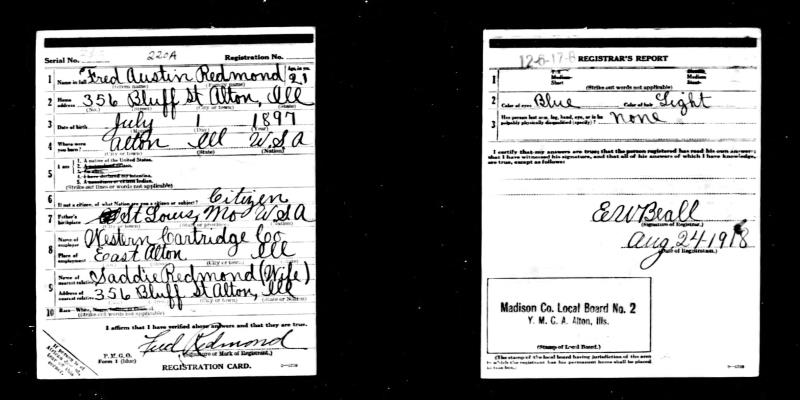 Serial No. 220A Registration No.
1 Name in full Fred Austin Redmond Age, in yrs. 21
(Given name) (Family name)
2 Home address 356 Bluff St Alton, Ill
(No.) (Street) (City or town) (State)
3 Date of birth July 1 1897
(Month) (Day) (Year)
4 Where were you born? Alton Ill USA
(City or town) (State) (Nation)
5 I am
1. A native of the United States.
2. A naturalized citizen.
3. An alien.
4. I have declared my intention.
5. A noncitizen or citizen Indian.
(Strike out lines or words not applicable)
6 If not a citizen, of what Nation are you a citizen or subject? Citizen
7 Father's birthplace St Louis, Mo USA
(City or town) (State or province) (Nation)
8 Name of employer Western Cartridge Co
Place of employment East Alton Ill
(City or town) (State)
9 Name of nearest relative Saddie Redmond (Wife)
Address of nearest relative 356 Bluff St Alton, Ill
(City or town) (State or Nation)
10 Race—White, Negro, Indian, or Oriental
(Strike out words not applicable)
I affirm that I have verified above answers and that they are true.
P. M. G. O.
Form 1 (blue)
Fred Redmond
(Signature or Mark of Registrant.)
REGISTRATION CARD.
If person is of African
12-6-17-B REGISTRAR'S REPORT
1 Tall Medium Short Slender Medium Stout
(Strike out words not applicable)
2 Color of eyes Blue Color of hair Light
3 Has person lost arm, leg, hand, eye, or is he palpably physically disqualified (specify)? None
I certify that my answers are true; that the person registered has read his own answers;
that I have witnessed his signature, and that all of his answers of which I have knowledge,
are true, except as follows:
E W Beall
(Signature of Registrar.)
Aug 24-1918
(Date of Registration.)
Madison Co. Local Board No. 2
Y. M. C. A. Alton, Ills.
(Stamp of Local Board.)
(The stamp of the local board having jurisdiction of the area
in which the registrant has his permanent home shall be placed
in this box.)